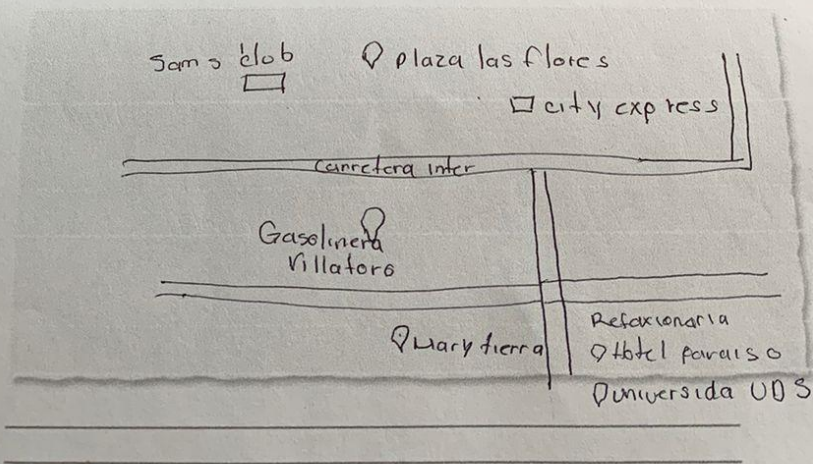 Sams club
plaza las flores
city express
Carretera inter
Gasolinera
Villatoro
Mary tierra
Refaxionaria
Hotel paraiso
universida UDS